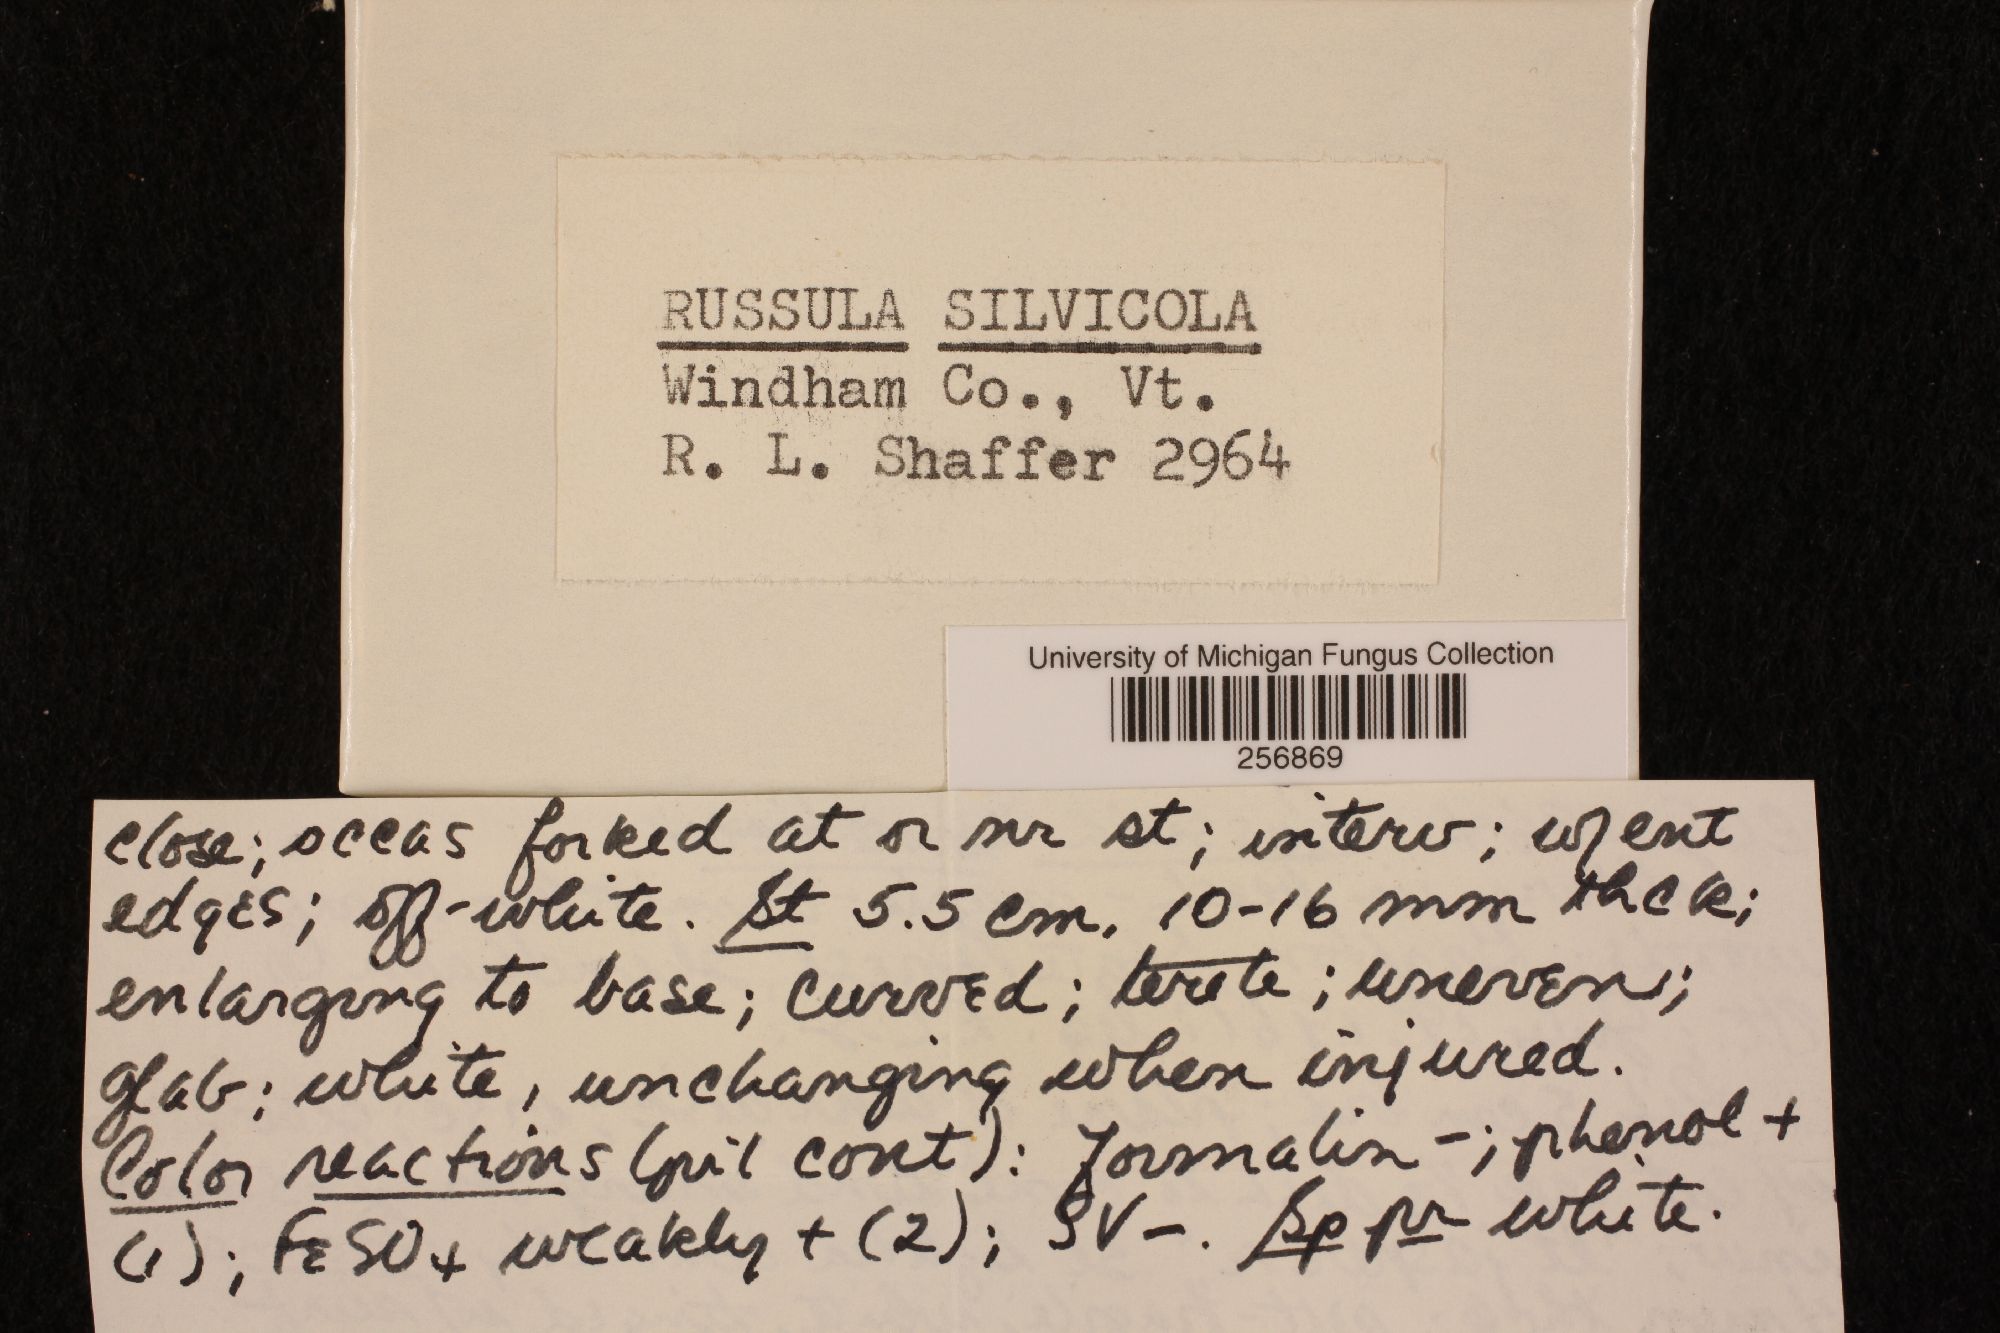 RUSSULA SILVICOLA
Windham Co., Vt.
R. L. Shaffer 2964
University of Michigan Fungus Collection
256869
close; occas forked at or nr st; interv; w/ ent
edges; off-white. St 5.5 cm, 10-16 mm thck;
enlarging to base; curved; terete; uneven;
glab; white, unchanging when injured.
Color reactions (pil cont): Formalin -; phenol +
(1); FeSO4 weakly + (2); SV -. Sp pr white.